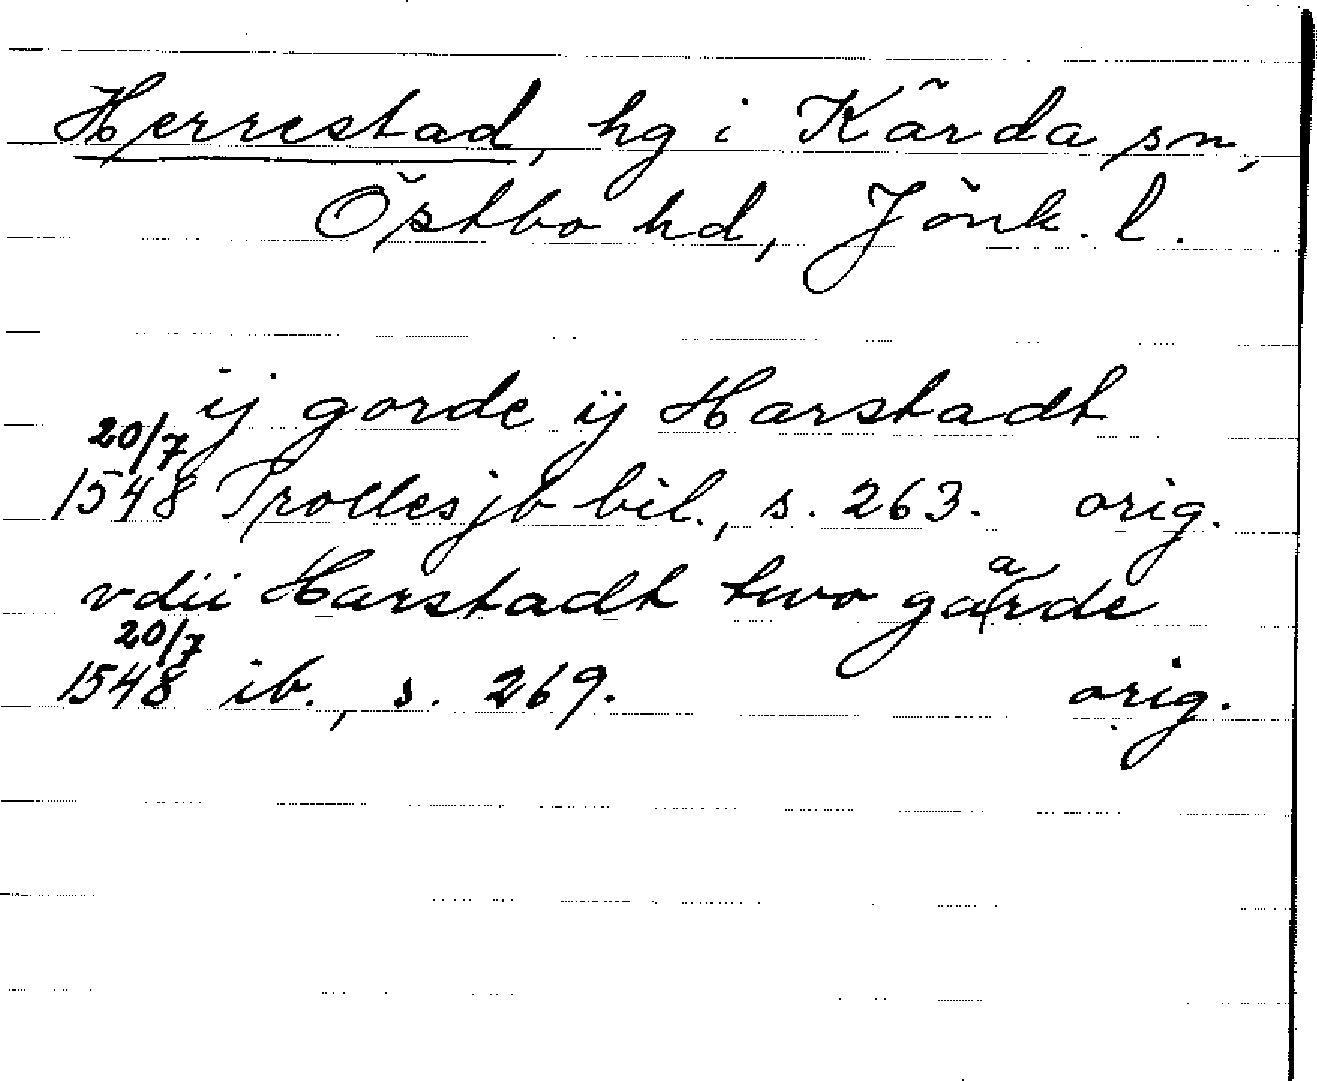 Herrestad, hg i Kärda sn,
Östbo hd, Jönk. l.
ij gorde ij Harstadt
20/7
1548 Trollesjb bil., s. 263. orig.
vdii Harstadt two gaarde
20/7
1548 ib., s. 269. orig.